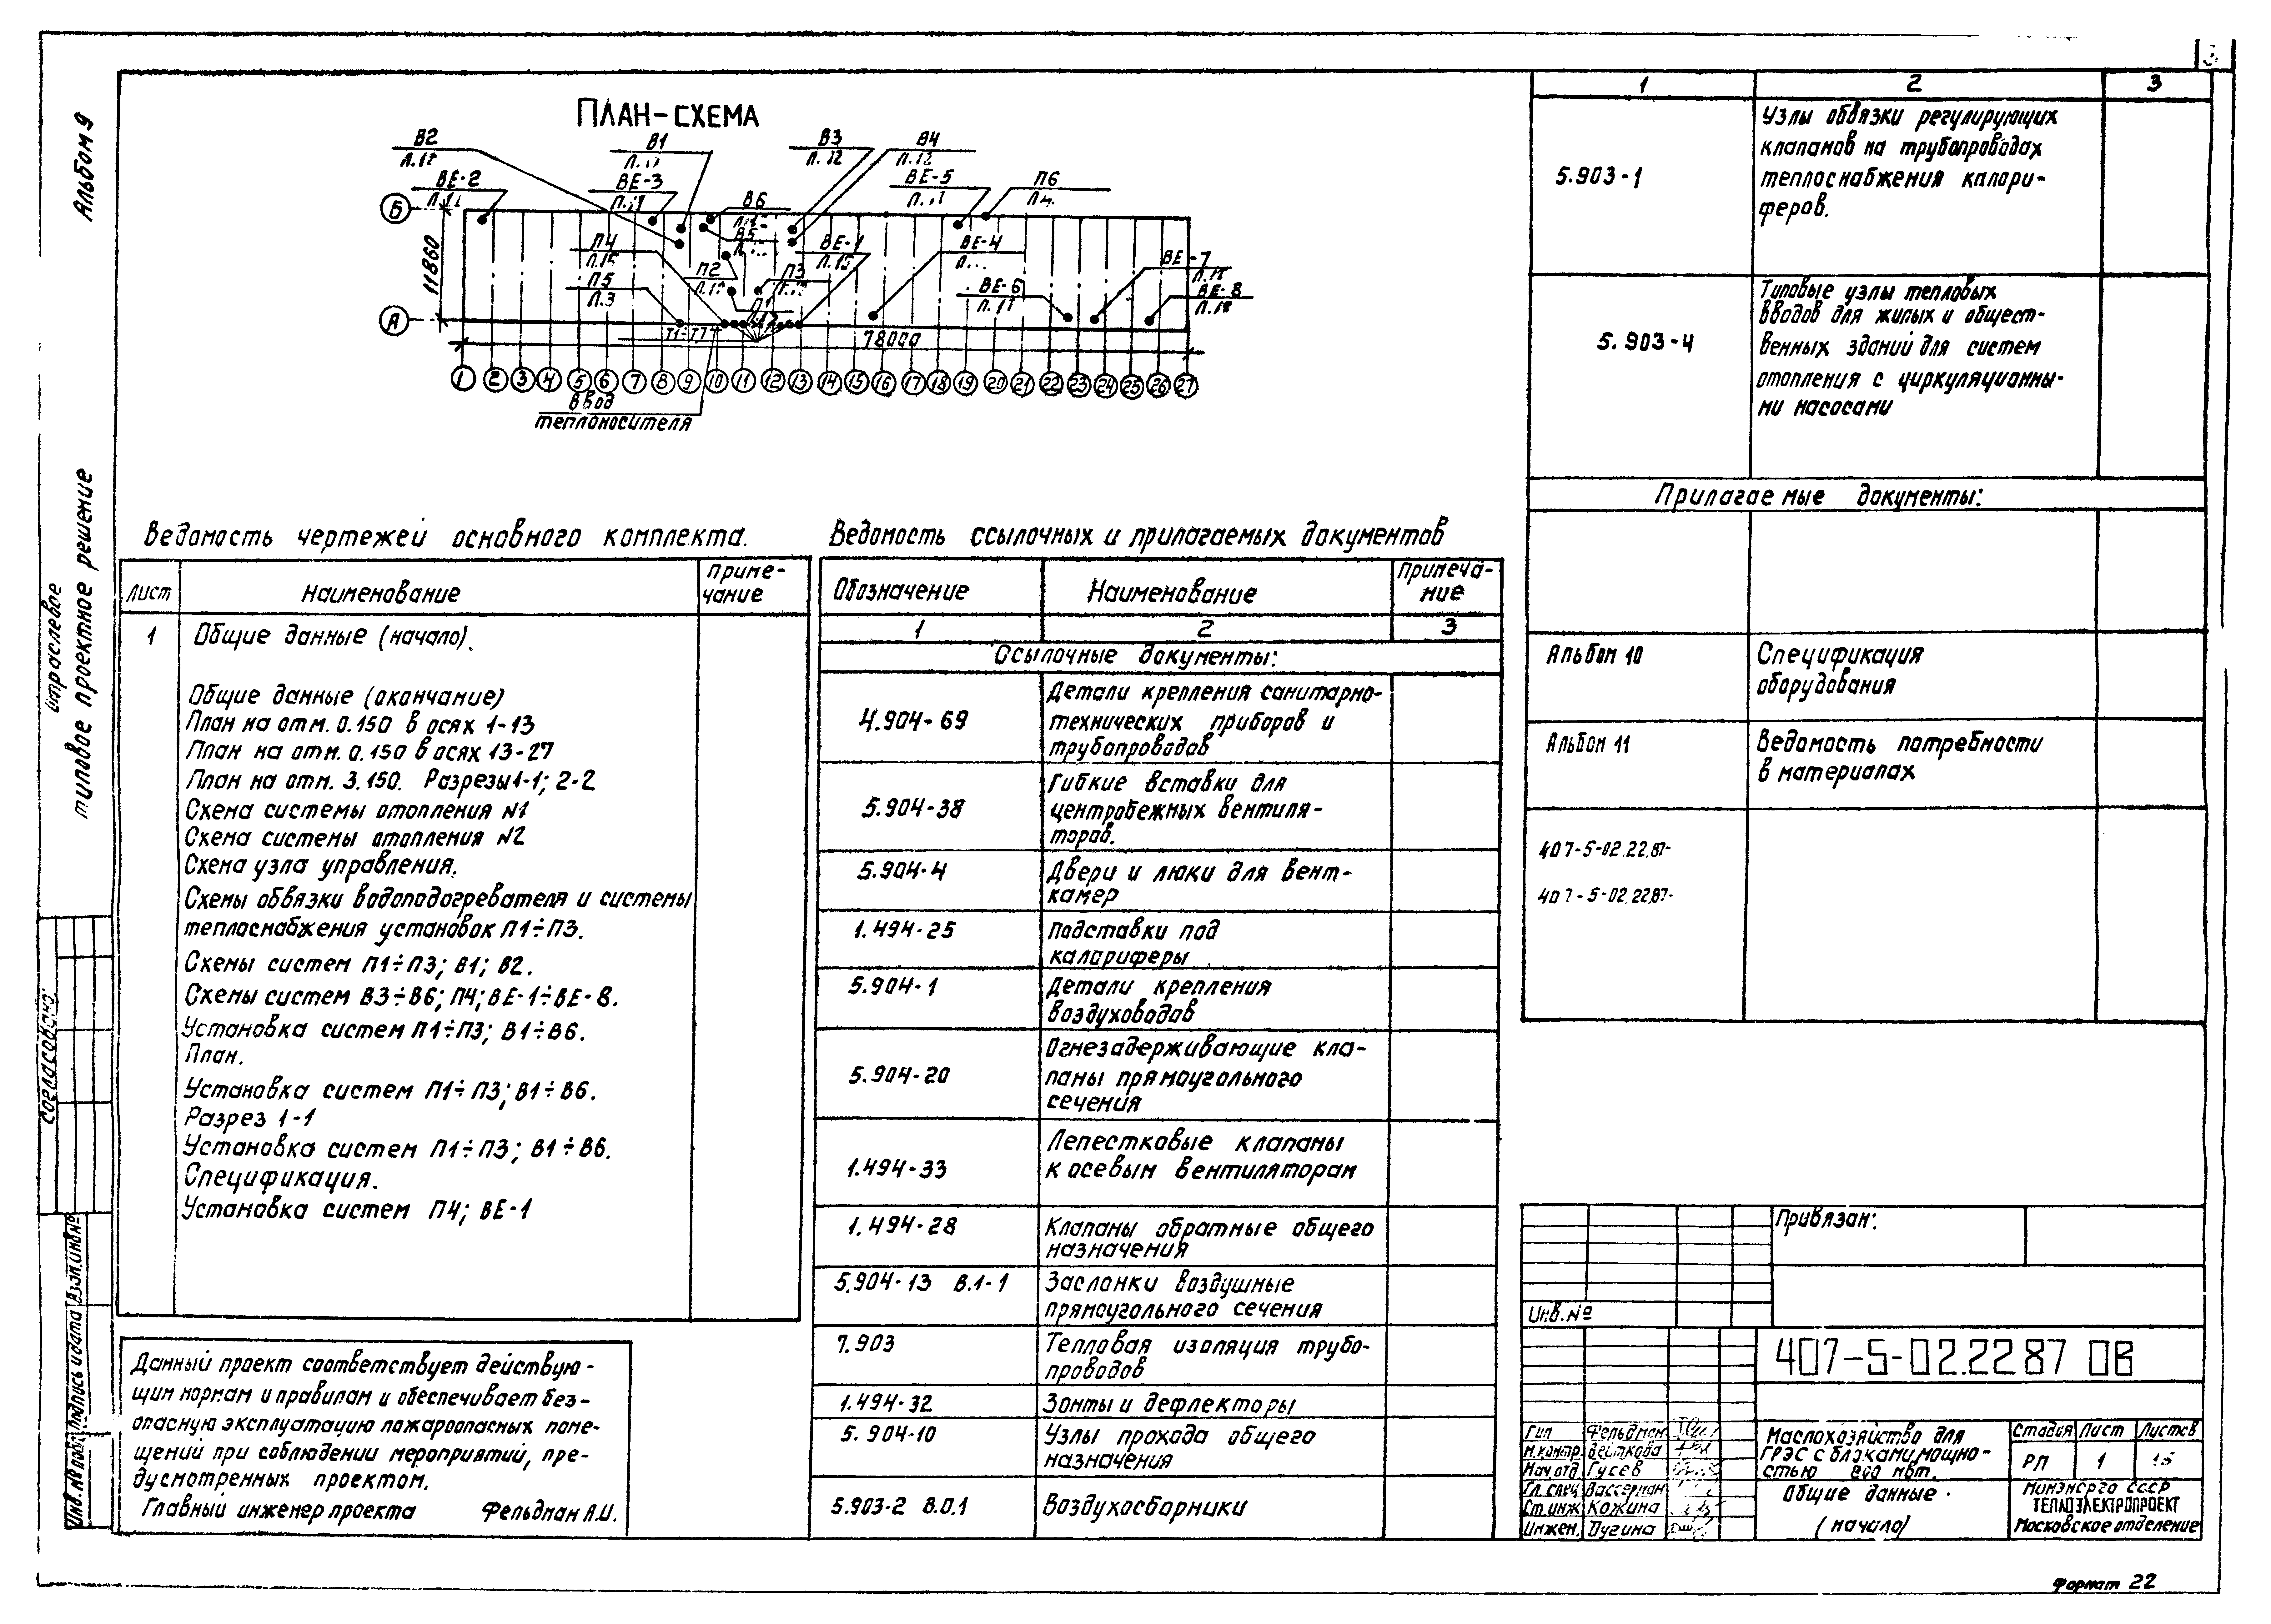 3
Альбом 9
отраслевое
типовое проектное решение
согласовано:
Взам.инв№
Подпись и дата
Инв.№ подл
ПЛАН-СХЕМА
В2
Л.12
В1
В3
Л.12
В4
Л.12
ВЕ-2
ВЕ-3
В6
ВЕ-5
П6
Б
В5
П4
Л.15
ВЕ-1
Л.15
ВЕ-4
ВЕ-7
П2
П3
П5
Л.3
П1
ВЕ-6
ВЕ-8
11860
А
78000
1 2 3 4 5 6 7 8 9 10 11 12 13 14 15 16 17 18 19 20 21 22 23 24 25 26 27
Ввод
теплоносителя
Ведомость чертежей основного комплекта.
Лист Наименование Приме-
чание
1 Общие данные (начало).
Общие данные (окончание)
План на отм. 0.150 в осях 1-13
План на отм. 0.150 в осях 13-27
План на отм. 3.150. Разрезы 1-1; 2-2
Схема системы отопления №1
Схема системы отопления №2
Схема узла управления.
Схемы обвязки водоподогревателя и системы
теплоснабжения установок П1÷П3.
Схемы систем П1÷П3; В1; В2.
Схемы систем В3÷В6; П4; ВЕ-1÷ВЕ-8.
Установка систем П1÷П3; В1÷В6.
План.
Установка систем П1÷П3; В1÷В6.
Разрез 1-1
Установка систем П1÷П3; В1÷В6.
Спецификация.
Установка систем П4; ВЕ-1
Данный проект соответствует действую-
щим нормам и правилам и обеспечивает без-
опасную эксплуатацию пожароопасных поме-
щений при соблюдении мероприятий, пре-
дусмотренных проектом.
Главный инженер проекта Фельдман А.И.
Ведомость ссылочных и прилагаемых документов
Обозначение Наименование Примеча-
ние
1 2 3
Ссылочные документы:
4.904-69 Детали крепления санитарно-
технических приборов и
трубопроводов
5.904-38 Гибкие вставки для
центробежных вентиля-
торов.
5.904-4 Двери и люки для вент-
камер
1.494-25 Подставки под
калориферы
5.904-1 Детали крепления
воздуховодов
5.904-20 Огнезадерживающие кла-
паны прямоугольного
сечения
1.494-33 Лепестковые клапаны
к осевым вентиляторам
1.494-28 Клапаны обратные общего
назначения
5.904-13 В.1-1 Заслонки воздушные
прямоугольного сечения
7.903 Тепловая изоляция трубо-
проводов
1.494-32 Зонты и дефлекторы
5.904-10 Узлы прохода общего
назначения
5.903-2 В.0.1 Воздухосборники
1 2 3
5.903-1 Узлы обвязки регулирующих
клапанов на трубопроводах
теплоснабжения калори-
феров.
5.903-4 Типовые узлы тепловых
вводов для жилых и общест-
венных зданий для систем
отопления с циркуляционны-
ми насосами
Прилагаемые документы:
Альбом 10 Спецификация
оборудования
Альбом 11 Ведомость потребности
в материалах
407-5-02.22.87-
407-5-02.22.87-
Привязан:
Инв.№
407-5-02.22 87 ОВ
Гип Фельдман
Н.контр. Вейткова
Нач.отд. Гусев
Гл.спец. Вассерман
Ст.инж. Кожина
Инжен. Пугина
Маслохозяйство для
ГРЭС с блоками мощно-
стью 800 мвт.
Общие данные
(начало)
Стадия Лист Листов
РП 1 15
Минэнерго СССР
ТЕПЛОЭЛЕКТРОПРОЕКТ
Московское отделение
Формат 22